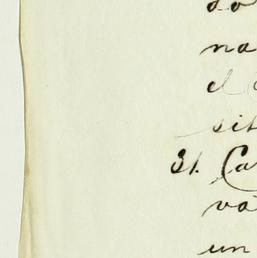 do
na
el
sit
31. Ca
va
un